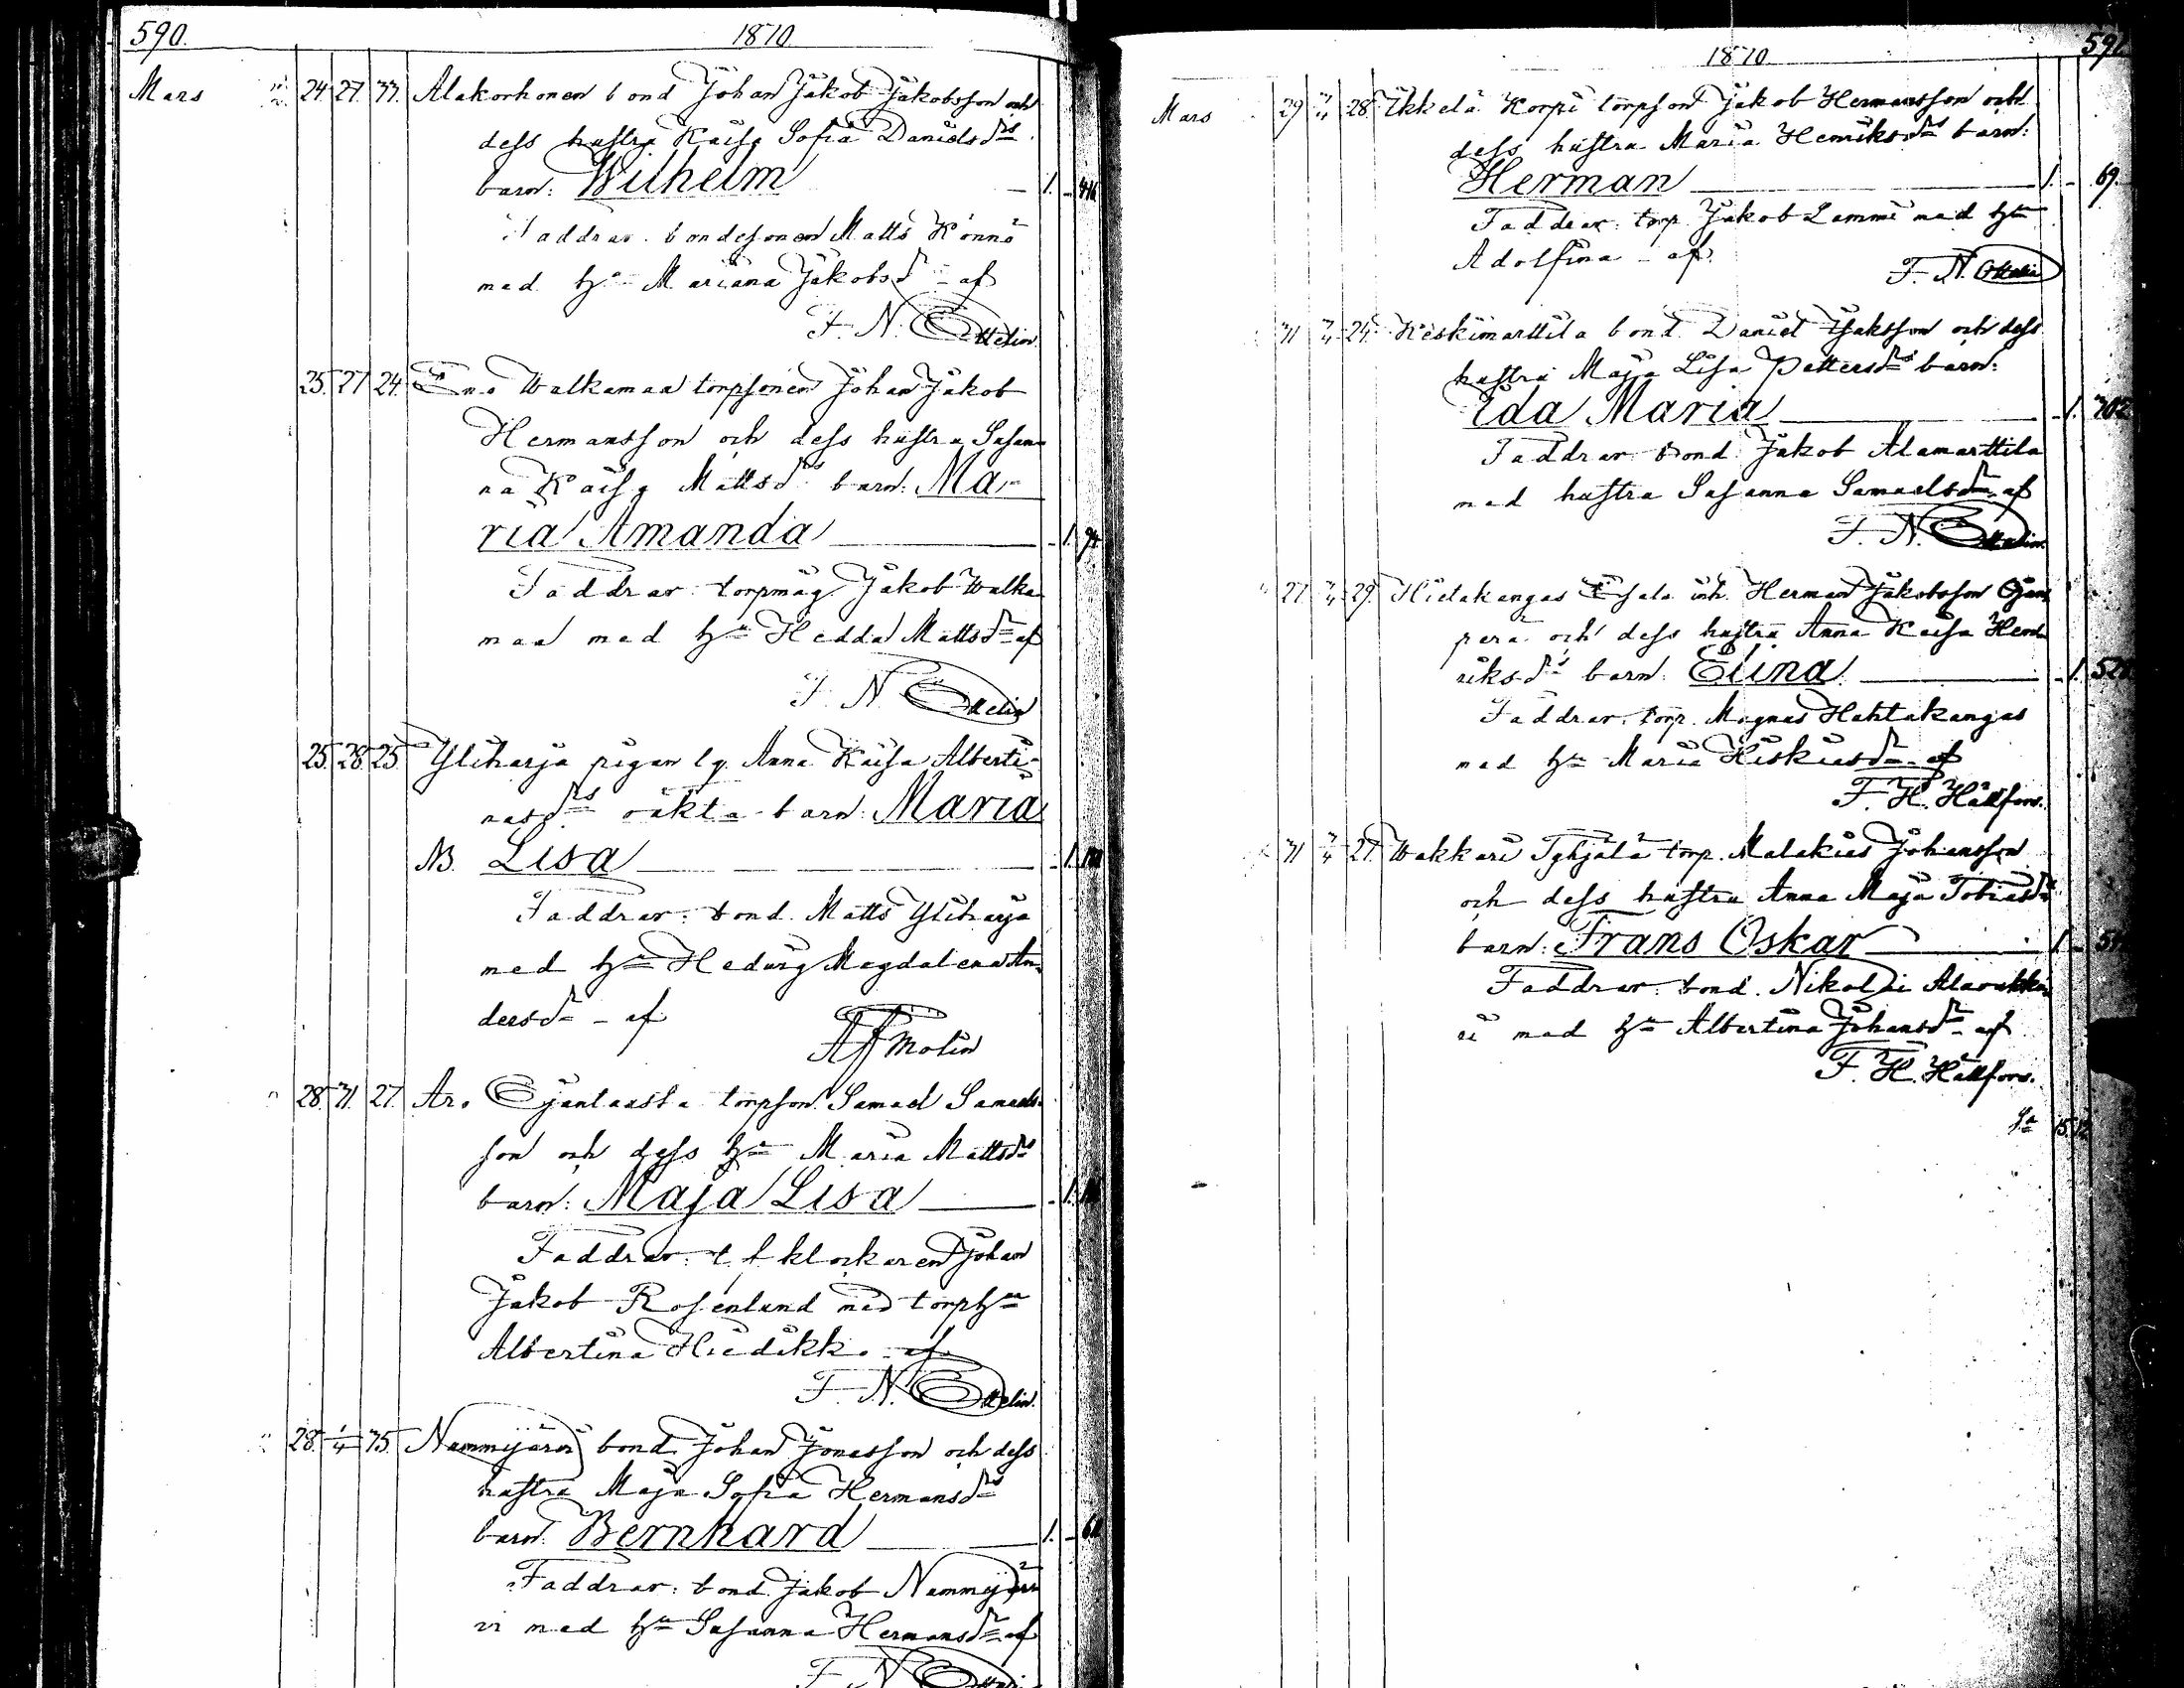 590. 1870
Mars 24. 27. 33. Alakorhonen bond Johan Jakob Jakobsson och
dess hustru Kaisa Sofia Danielsdrs
barn: Wilhelm 1.
Faddrar: bondesonen Matts Könnö
med hu Mariana Jakobsdr af
F. N. Ottelin
25. 27. 24. Walkamaa torpsonen Johan Jakob
Hermansson och dess hustru Susan-
na Kaisa Mattsdrs barn: Ma-
ria Amanda 1.
Faddrar: torpmåg Jakob Walka
maa med hu Hedda Mattsdr af
F. N. Ottelin
25. 28. 25. Yliharja pigan lg. Anna Kaisa Alberti-
nasdrs oäkta barn: Maria
NB. Lisa 1.
Faddrar: bond. Matts Yliharja
med hu Hedvig Magdalena An-
dersdr - af
Molin
28. 31. 27. Aro Ojantausta torpson Samuel Samuels-
son och dess hu Maria Mattsdrs
barn: Maja Lisa 1.
Faddrar: t. f. klockaren Johan
Jakob Rosenlund med torphu
Albertina Hiedikko - af
F. N. Ottelin.
28. 1/4 35. Nummijärvi bond. Johan Jonasson och dess
hustru Maja Sofia Hermansdrs
barn: Bernhard 1.
Faddrar: bond Jakob Nummijär
vi med hu Susanna Hermansdr af
F. N. Ottelin
1870. 591
Mars 29 3/4 28. Ikkelä Korpi torpson Jakob Hermansson och
dess hustru Maria Henriksdrs barn:
Herman 1. 69.
Faddrar: torp. Jakob Lammi med hu
Adolfina - af.
F. N. Ottelin
31 3/4 24. Keskimarttila bond. Daniel Isaksson och dess
hustru Maja Lisa Pettersdrs barn:
Ida Maria 1.
Faddrar: bond. Jakob Alamarttila
med hustru Susanna Samuelsdr af
F. N. Ottelin.
27 3/4 29. Hietakangas inh. Herman Jakobsson Ojan
perä och dess hustru Anna Kaisa Hen
riksdrs barn: Elina 1.
Faddrar: torp. Magnus Hahtakangas
med hu Maria Hiskiasdr af
F. H. Hällfors.
31 3/4 27. Wakkuri Tyhjälä torp. Malakias Johansson
och dess hustru Anna Maja Tobiasdrs
barn: Frans Oskar 1.
Faddrar: bond. Nikolai Alavakku
ri med hu Albertina Johansdr af
F. H. Hällfors.
Sa 15.